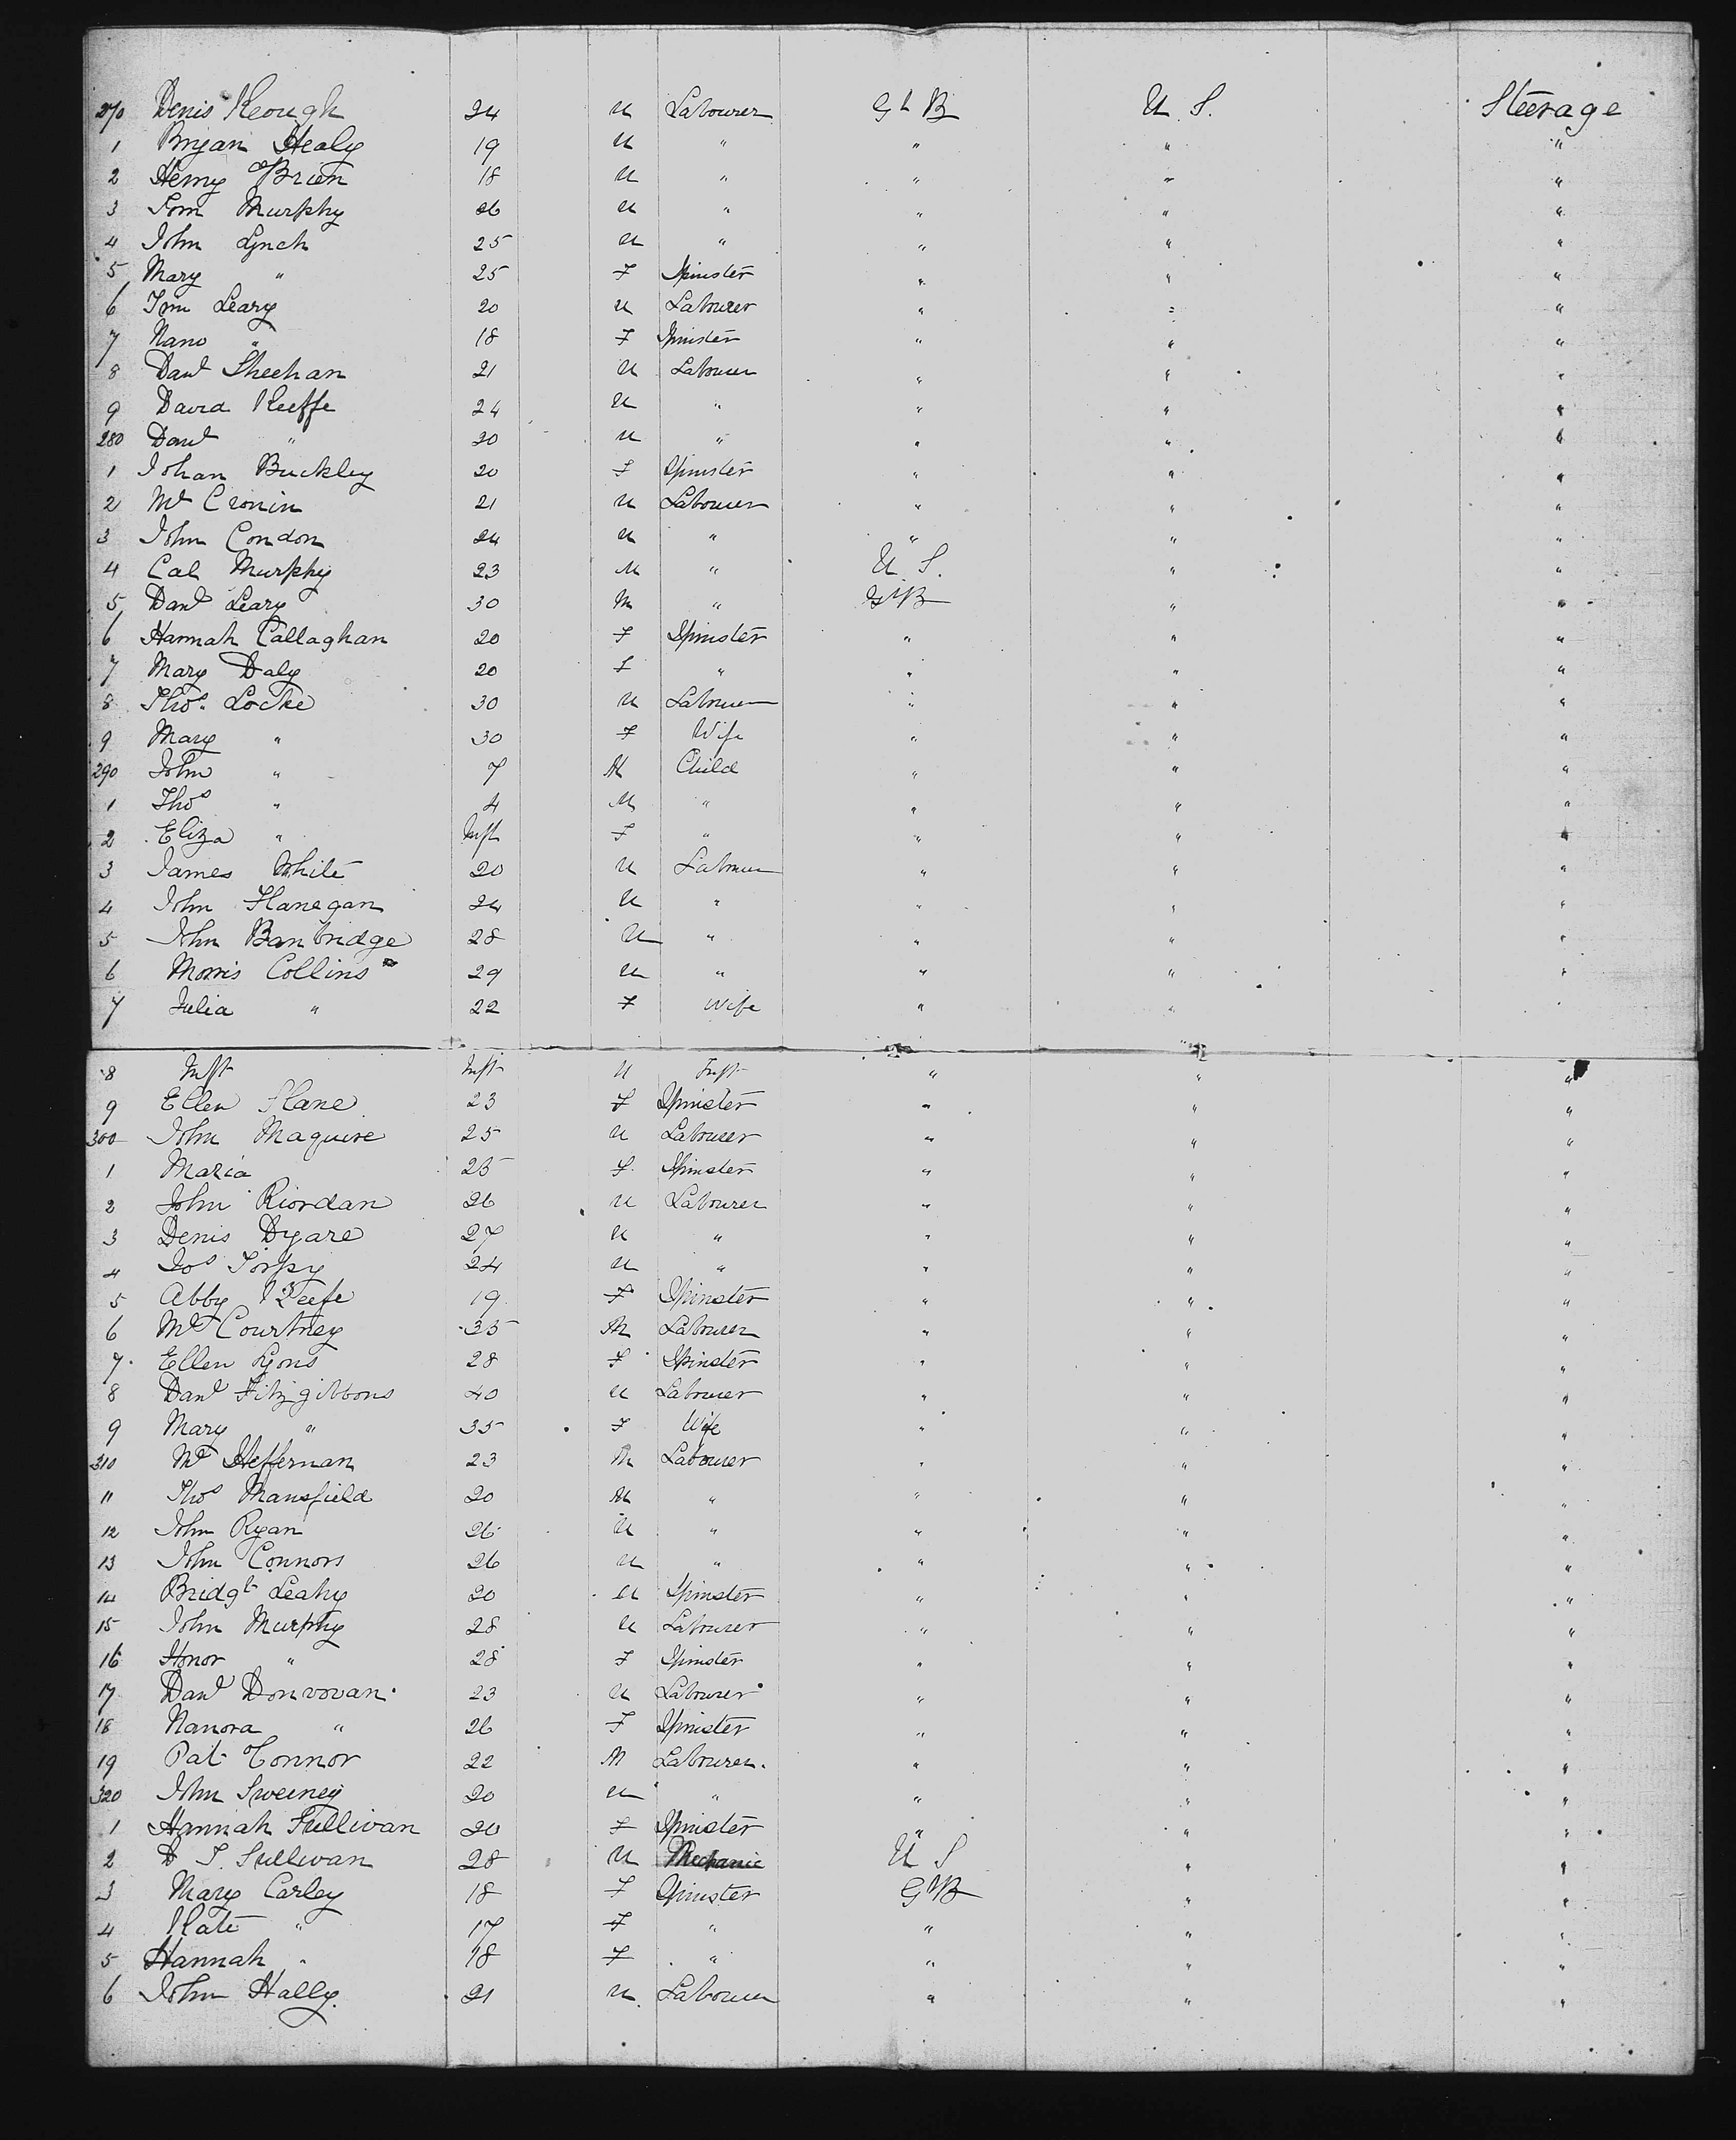 270 Denis Keough 24 M Labourer Gt B U. S. Steerage
1 Bryan Healy 19 M " " " "
2 Henry O'Brien 18 M " " " "
3 Tom Murphy 26 M " " " "
4 John Lynch 25 M " " " "
5 Mary " 25 F Spinster " " "
6 Tim Leary 20 M Labourer " " "
7 Nano " 18 F Spinster " " "
8 Danl Sheehan 21 M Labourer " " "
9 David Keeffe 24 M " " " "
280 Danl " 20 M " " " "
1 Johan Buckley 20 F Spinster " " "
2 Ml Cronin 21 M Labourer " " "
3 John Condon 24 M " " " "
4 Cal Murphy 23 M " U S. " "
5 Danl Leary 30 M " Gt B " "
6 Hannah Callaghan 20 F Spinster " " "
7 Mary Daly 20 F " " " "
8 Thos. Locke 30 M Labourer " " "
9 Mary " 30 F Wife " " "
290 John " 7 M Child " " "
1 Thos " 4 M " " " "
2 Eliza " Inft F " " " "
3 James White 20 M Labourer " " "
4 John Flanegan 24 M " " " "
5 John Banbridge 28 M " " " "
6 Morris Collins 29 M " " " "
7 Julia " 22 F Wife " " "
8 Inft Inft M Inft " " "
9 Ellen Slane 23 F Spinster " " "
300 John Maguire 25 M Labourer " " "
1 Maria 25 F Spinster " " "
2 John Riordan 26 M Labourer " " "
3 Denis Dyare 27 M " " " "
4 Jos Torpy 24 M " " " "
5 Abby Keefe 19 F Spinster " " "
6 Ml Courtney 35 M Labourer " " "
7 Ellen Lyons 28 F Spinster " " "
8 Danl Fitzgibbons 40 M Labourer " " "
9 Mary " 35 F Wife " " "
310 Ml Heffernan 23 M Labourer " " "
11 Thos Mansfield 20 M " " " "
12 John Ryan 26 M " " " "
13 John Connors 26 M " " " "
14 Bridgt Leahy 20 M Spinster " " "
15 John Murphy 28 M Labourer " " "
16 Honor " 28 F Spinster " " "
17 Danl Donvovan 23 M Labourer " " "
18 Nanora " 26 F Spinster " " "
19 Pat Connor 22 M Labourer " " "
320 John Sweeney 20 M " " " "
1 Hannah Sullivan 20 F Spinster " " "
2 D S. Sullivan 28 M Mechanic U S " "
3 Mary Carley 18 F Spinster Gt B " "
4 Kate " 17 F " " " "
5 Hannah " 18 F " " " "
6 John Hally 21 M Labourer " " "